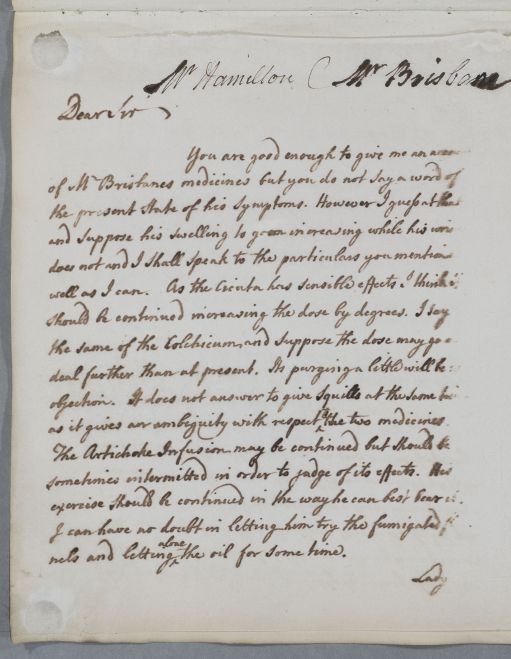 Mr Hamilton ( Mr Brisbane
Dear Sir
You are good enough to give me an
of Mr Brisbanes medicines but you do not say a word of
the present state of his symptoms. However I guess at that
and suppose his swelling to go on increasing while his
does not and I shall speak to the particulars you mention
well as I can. As the Cicuta has sensible effects I think
should be continued increasing the dose by degrees. I say
the same of the Colchicum and suppose the dose may go a
deal further than at present. Its purging a little will be
objection. It does not answer to give Squills at the same
as it gives an ambiguity with respect to the two medicines.
The Artichoke Infusion may be continued but should be
sometimes intermitted in order to judge of its effects. His
exercise should be continued in the way he can best bear it.
I can have no doubt in letting him try the fumigated
nels and letting alone the oil for some time.
Lady